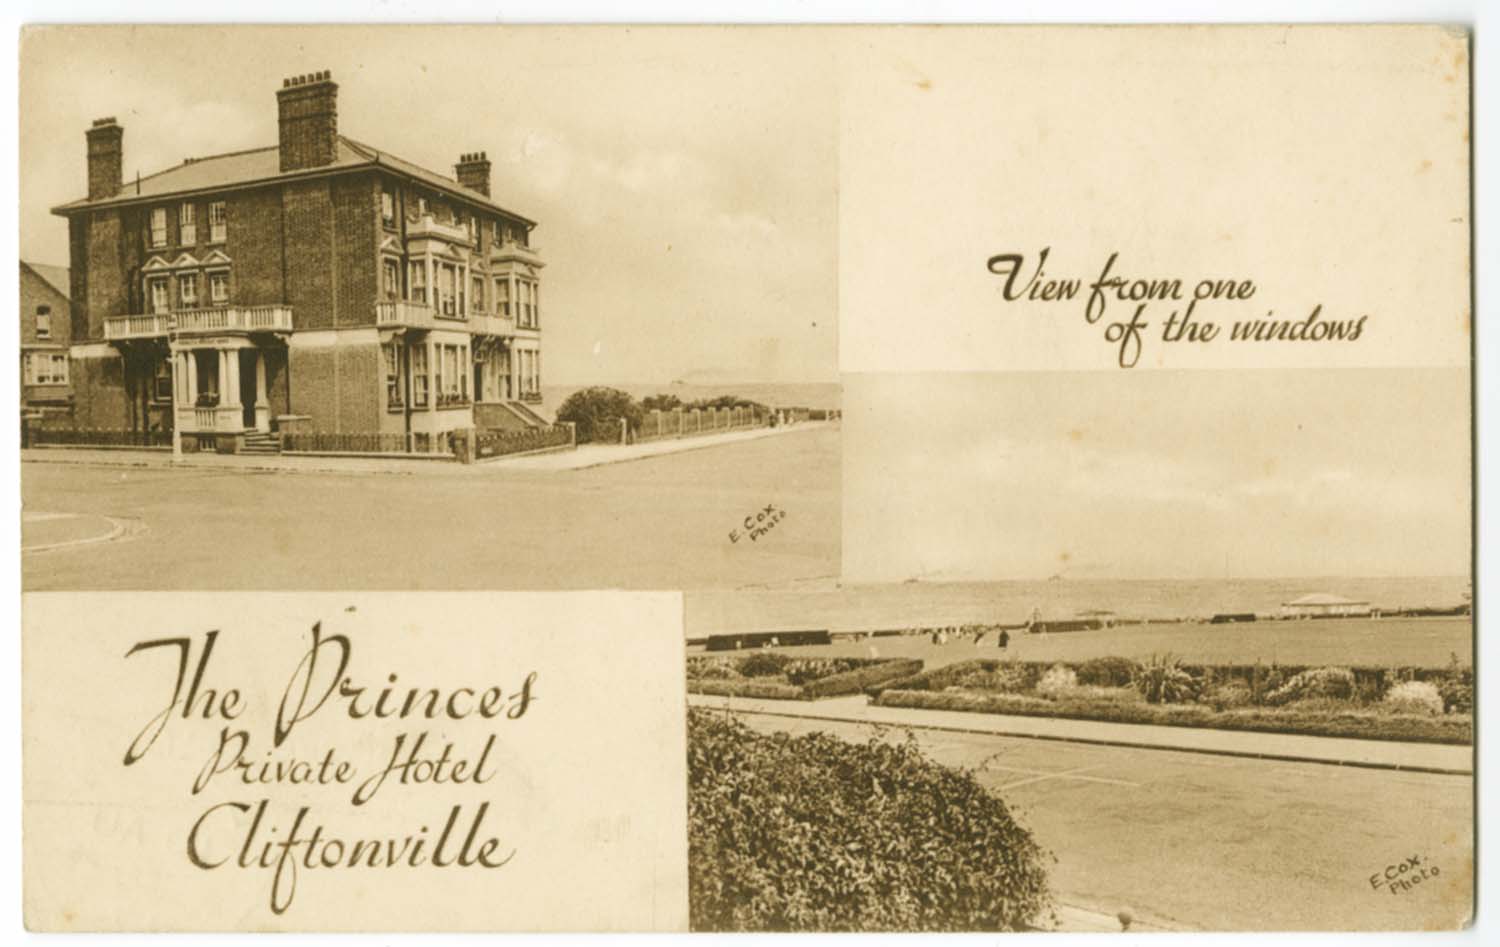 View from one
of the windows
E. Cox
Photo
The Princes
Private Hotel
Cliftonville
E. Cox.
Photo